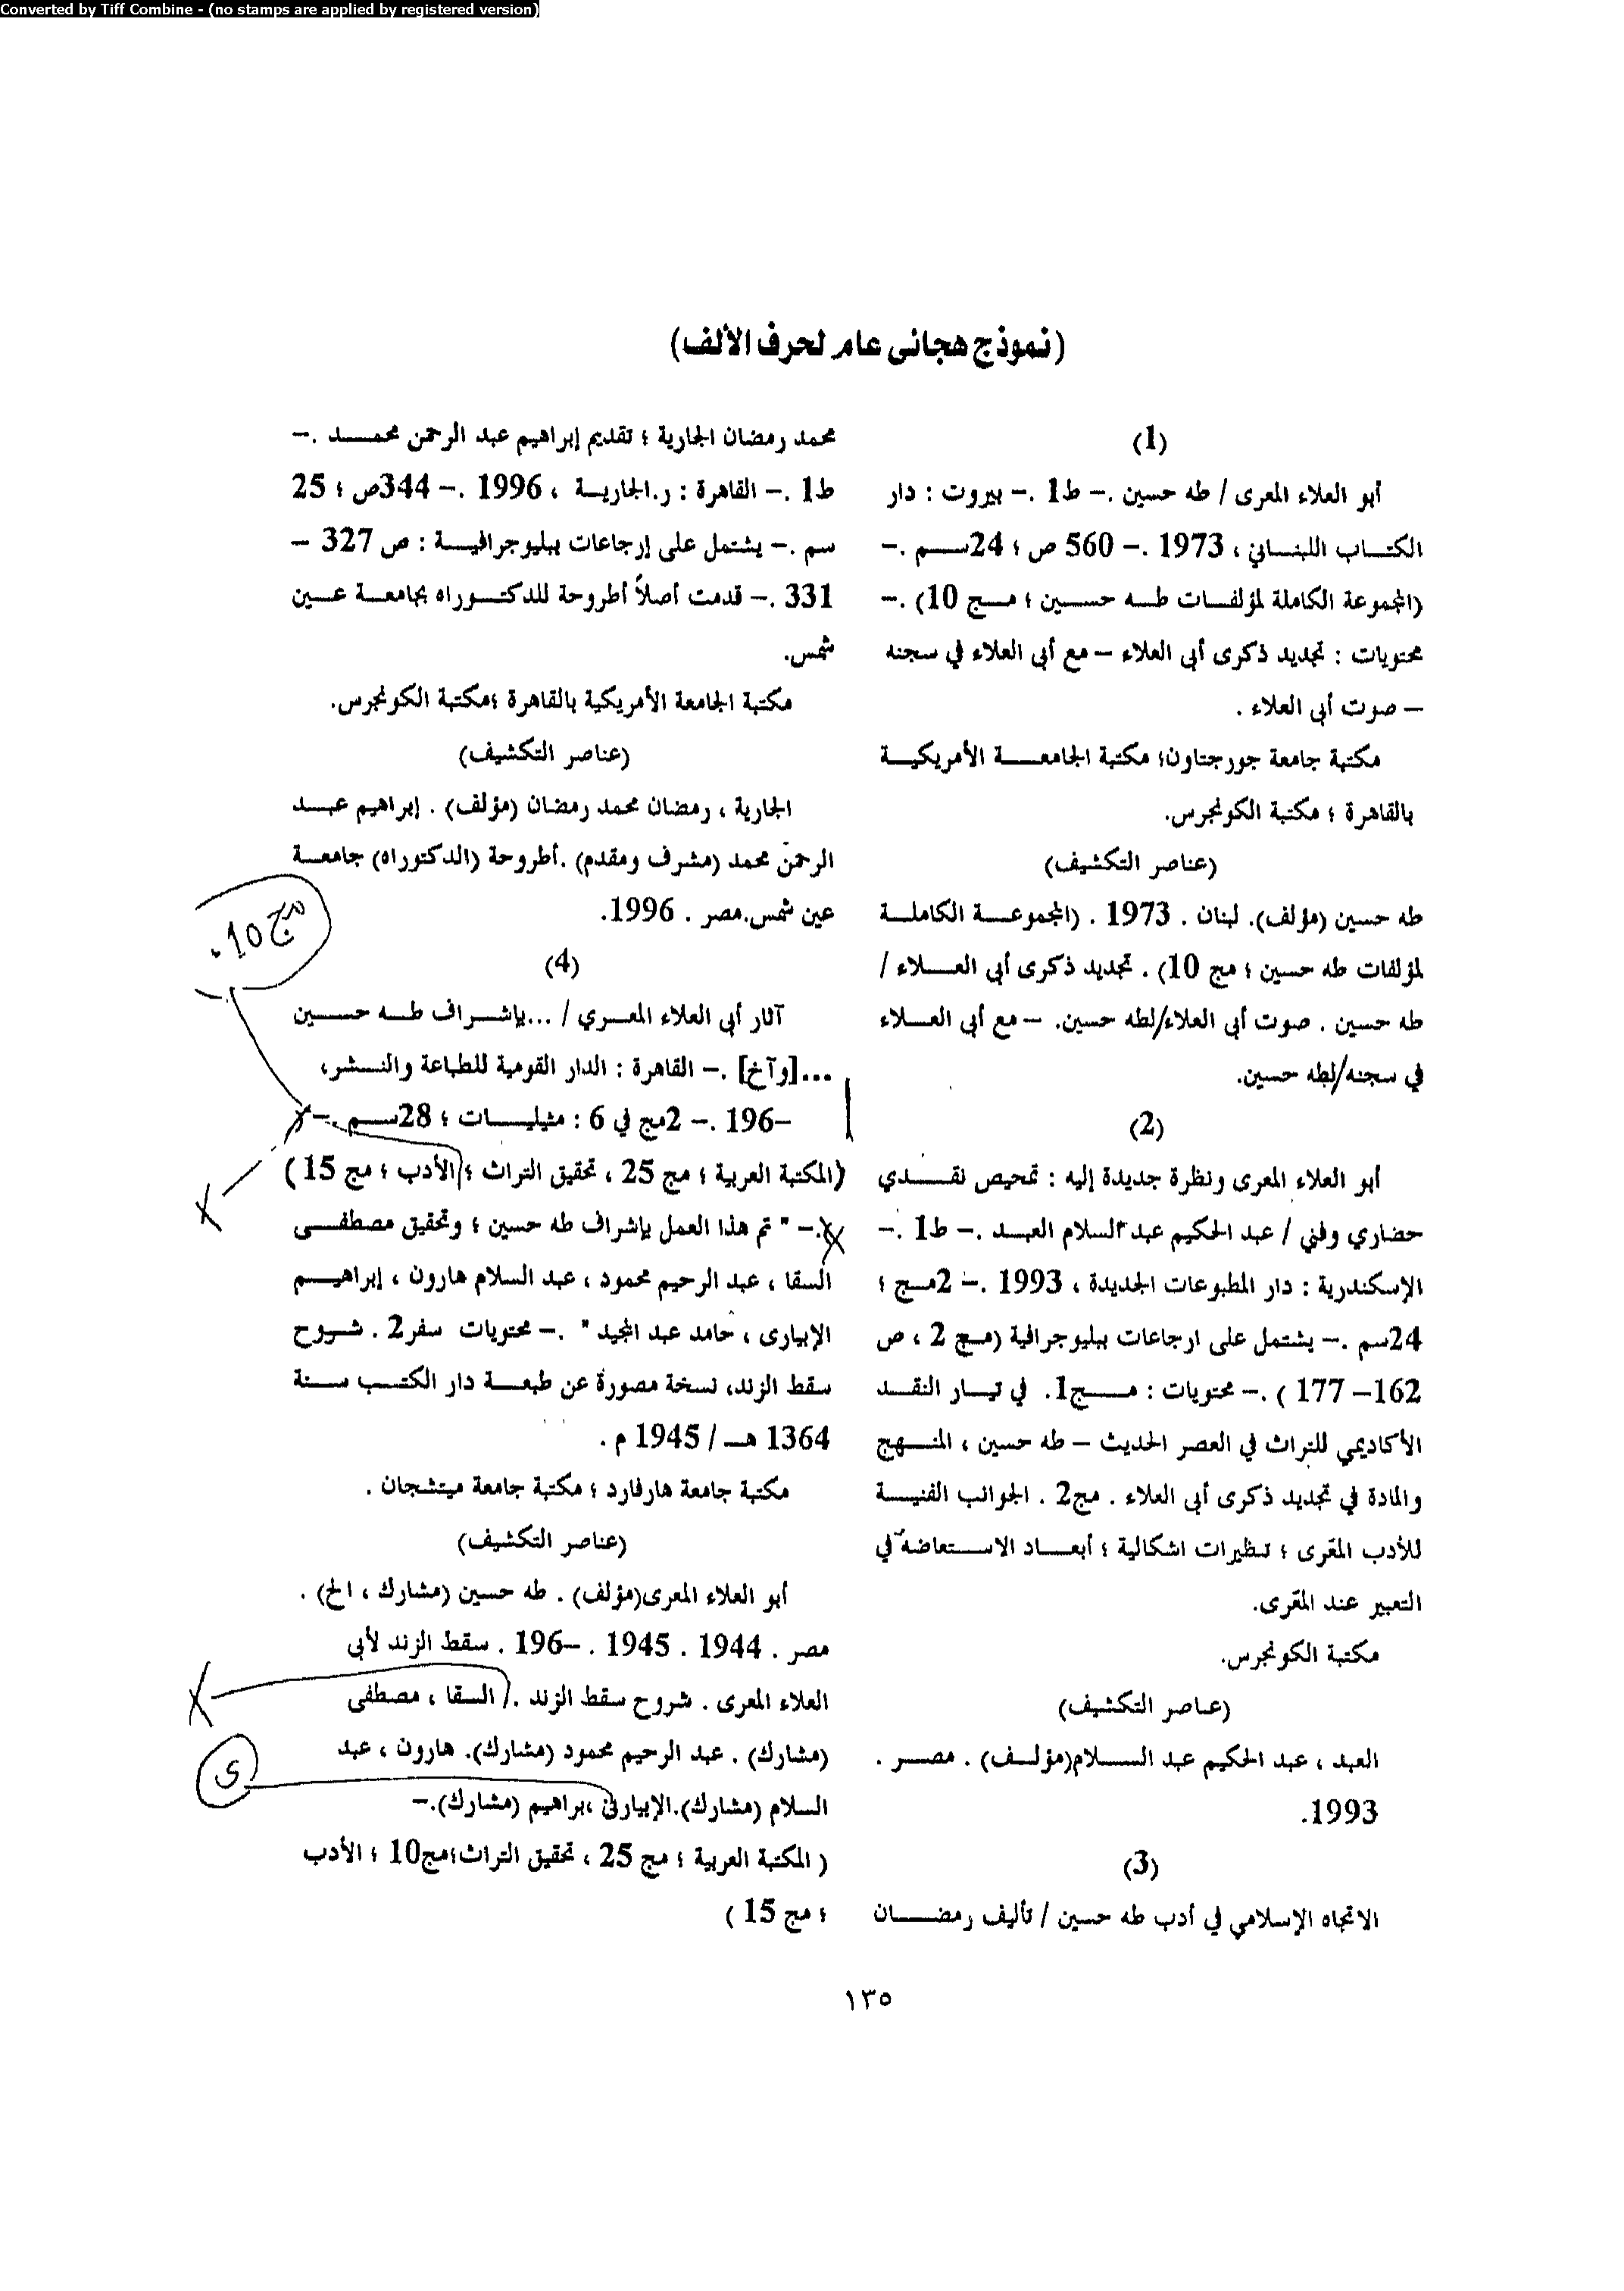 Converted by Tiff Combine - (no stamps are applied by registered version)
(نموذج هجائى عام لحرف الألف)
(1)
أبو العلاء المعرى / طه حسين .– ط1 .– بيروت : دار
الكتاب اللبناني ، 1973 .– 560 ص ؛ 24سم .–
(المجموعة الكاملة لمؤلفات طه حسين ؛ مج 10) .–
محتويات : تجديد ذكرى أبى العلاء – مع أبى العلاء في سجنه
– صوت أبى العلاء .
مكتبة جامعة جورجتاون؛ مكتبة الجامعة الأمريكية
بالقاهرة ؛ مكتبة الكونجرس.
(عناصر التكشيف)
طه حسين (مؤلف). لبنان . 1973 . (المجموعة الكاملة
لمؤلفات طه حسين ؛ مج 10) . تجديد ذكرى أبى العلاء /
طه حسين . صوت أبى العلاء/لطه حسين. – مع أبى العلاء
في سجنه/لطه حسين.
(2)
أبو العلاء المعرى ونظرة جديدة إليه : تمحيص نقدي
حضاري وفني / عبد الحكيم عبد السلام العبد .– ط1 .–
الإسكندرية : دار المطبوعات الجديدة ، 1993 .– 2مج ؛
24سم .– يشتمل على ارجاعات ببليوجرافية (مج 2 ، ص
162– 177 ) .– محتويات : مج1. في تيار النقد
الأكاديمي للتراث في العصر الحديث – طه حسين ، المنهج
والمادة في تجديد ذكرى أبى العلاء . مج2 . الجوانب الفنية
للأدب المعّرى ؛ تنظيرات اشكالية ؛ أبعاد الاستعاضة في
التعبير عند المعّرى.
مكتبة الكونجرس.
(عناصر التكشيف)
العبد ، عبد الحكيم عبد السلام(مؤلف) . مصر .
1993.
(3)
الاتجاه الإسلامي في أدب طه حسين / تأليف رمضان
محمد رمضان الجارية ؛ تقديم إبراهيم عبد الرحمن محمد .–
ط1 .– القاهرة : ر.الجارية ، 1996 .– 344ص ؛ 25
سم .– يشتمل على إرجاعات ببليوجرافية : ص 327 –
331 .– قدمت أصلاً أطروحة للدكتوراه بجامعة عين
شمس.
مكتبة الجامعة الأمريكية بالقاهرة ؛مكتبة الكونجرس.
(عناصر التكشيف)
الجارية ، رمضان محمد رمضان (مؤلف) . إبراهيم عبد
الرحمن محمد (مشرف ومقدم) .أطروحة (الدكتوراه) جامعة
عين شمس.مصر . 1996.
مج 10.
(4)
آثار أبى العلاء المعري / ...بإشراف طه حسين
...[وآخ] .– القاهرة : الدار القومية للطباعة والنشر،
–196 .– 2مج في 6 : مثيليات ؛ 28سم .–
(المكتبة العربية ؛ مج 25 ، تحقيق التراث ؛ الأدب ؛ مج 15 )
.– " تم هذا العمل بإشراف طه حسين ؛ وتحقيق مصطفى
السقا ، عبد الرحيم محمود ، عبد السلام هارون ، إبراهيم
الإبيارى ، حامد عبد المجيد " .– محتويات سفر2 . شروح
سقط الزند، نسخة مصورة عن طبعة دار الكتب سنة
1364 هـ / 1945 م .
مكتبة جامعة هارفارد ؛ مكتبة جامعة ميتشجان .
(عناصر التكشيف)
أبو العلاء المعرى(مؤلف) . طه حسين (مشارك ، الخ) .
مصر . 1944 . 1945 . –196 . سقط الزند لأبى
العلاء المعرى . شروح سقط الزند ./ السقا ، مصطفى
(مشارك) . عبد الرحيم محمود (مشارك). هارون ، عبد
السلام (مشارك).الإبيارى ،براهيم (مشارك).–
( المكتبة العربية ؛ مج 25 ، تحقيق التراث؛مج10 ؛ الأدب
؛ مج 15 )
١٣٥